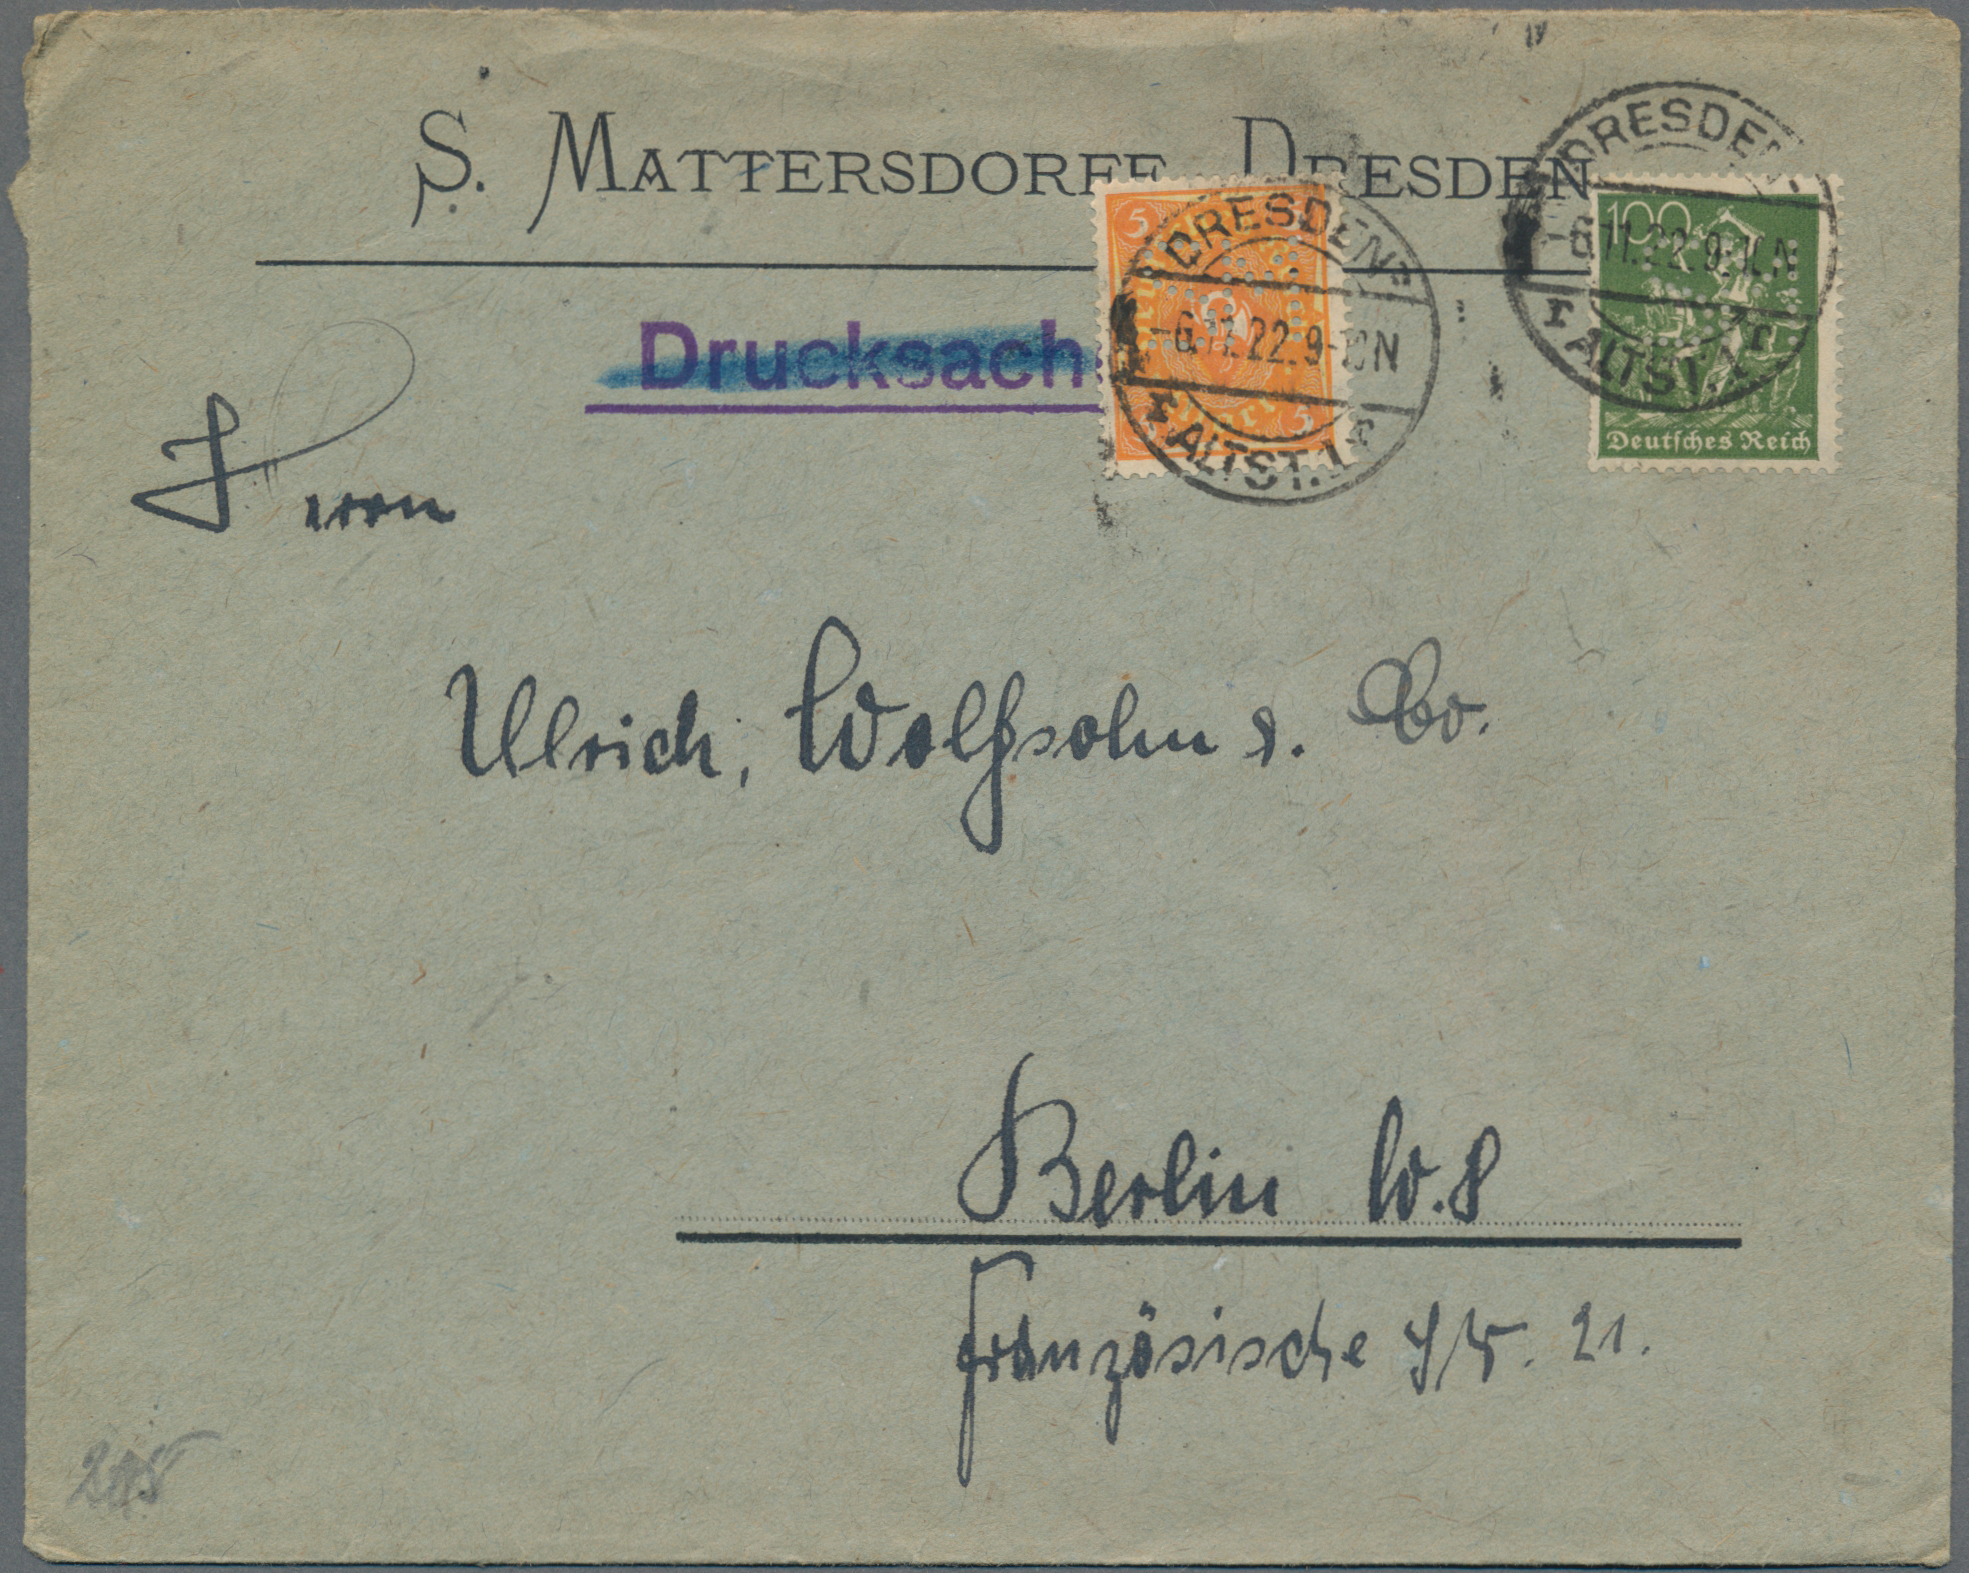 S. MATTERSDORFF, DRESDEN
Drucksach
5
5
DRESDEN
-6.11.22.9-10N
ALTST. 1
100
DRESDEN
-6.11.22.9-10N
ALTST. 1
Deutsches Reich
Herrn
Ulrich, Wolfssohn &. Co.
Berlin W.8
Französische Str. 21.